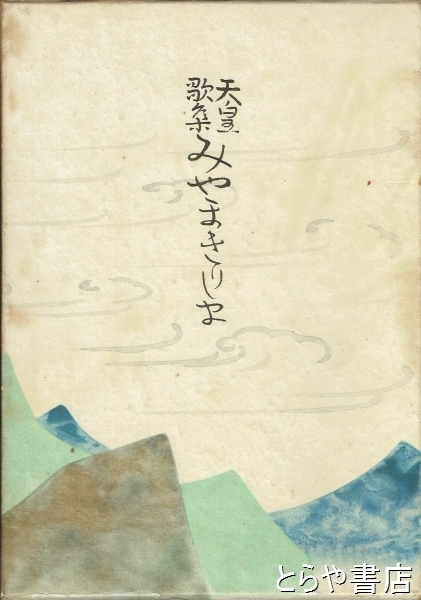 天皇歌集
みやまきりしま
とらや書店